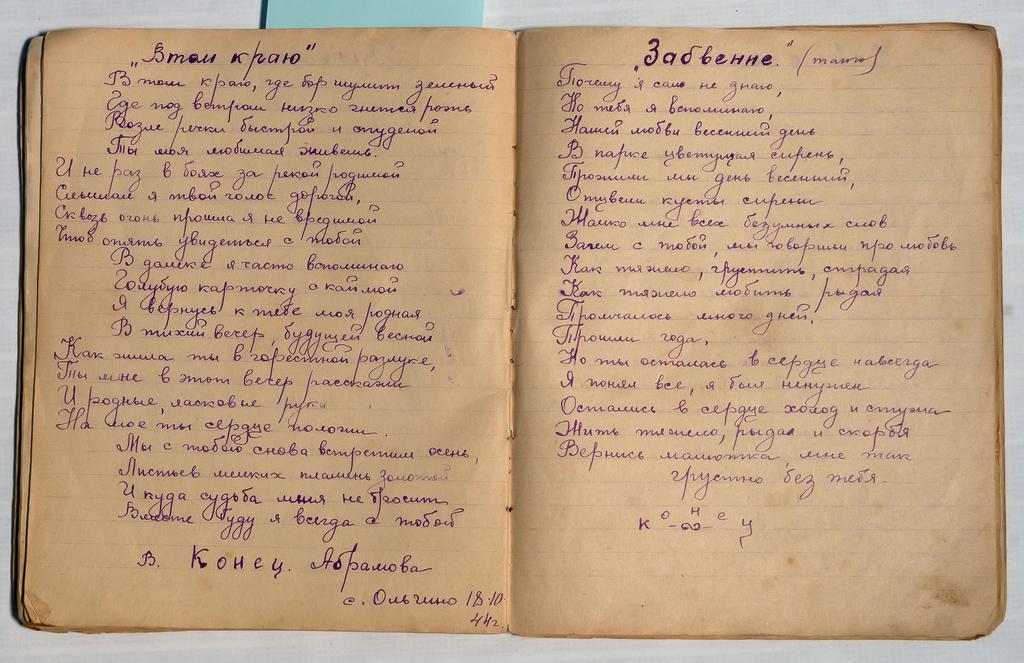 „В том краю"
В том краю, где бор шумит зеленый
Где под ветром низко гнется рожь
Возле речки быстрой и студеной
Ты моя любимая живешь.
И не раз в боях за рекой родимой
Слышал я твой голос дорогой,
Сквозь огонь прошла я не вредимой
Чтоб опять увидеться с тобой
В далеке я часто вспоминаю
Голубую карточку с каймой
Я вернусь к тебе моя родная
В тихий вечер, будущей весной
Как жила ты в горестной разлуке,
Ты мне в этот вечер расскажи
И родные, ласковые руки
На мое ты сердце положи.
Мы с тобою снова встретим осень,
Листьев мелких пламень золотой
И куда судьба меня не бросит
Вместе буду я всегда с тобой
В. Конец. Абрамова
с. Ольгино 18-10-
44г.
„Забвение." (танго)
Почему я сам не знаю,
Но тебя я вспоминаю,
Нашей любви весенний день
В парке цветущая сирень,
Прожили мы день весенний,
Отцвели кусты сирени
Жалко мне всех безумных слов
Зачем с тобой, мы говорили про любовь
Как тяжело, грустить, страдая
Как тяжело любить рыдая
Промчалось много дней,
Прошли года,
Но ты осталась в сердце навсегда
Я понял все, я был ненужен
Остались в сердце холод и стужа
Жить тяжело, рыдая и скорбя
Вернись малютка мне так
грустно без тебя.
к о н е ц